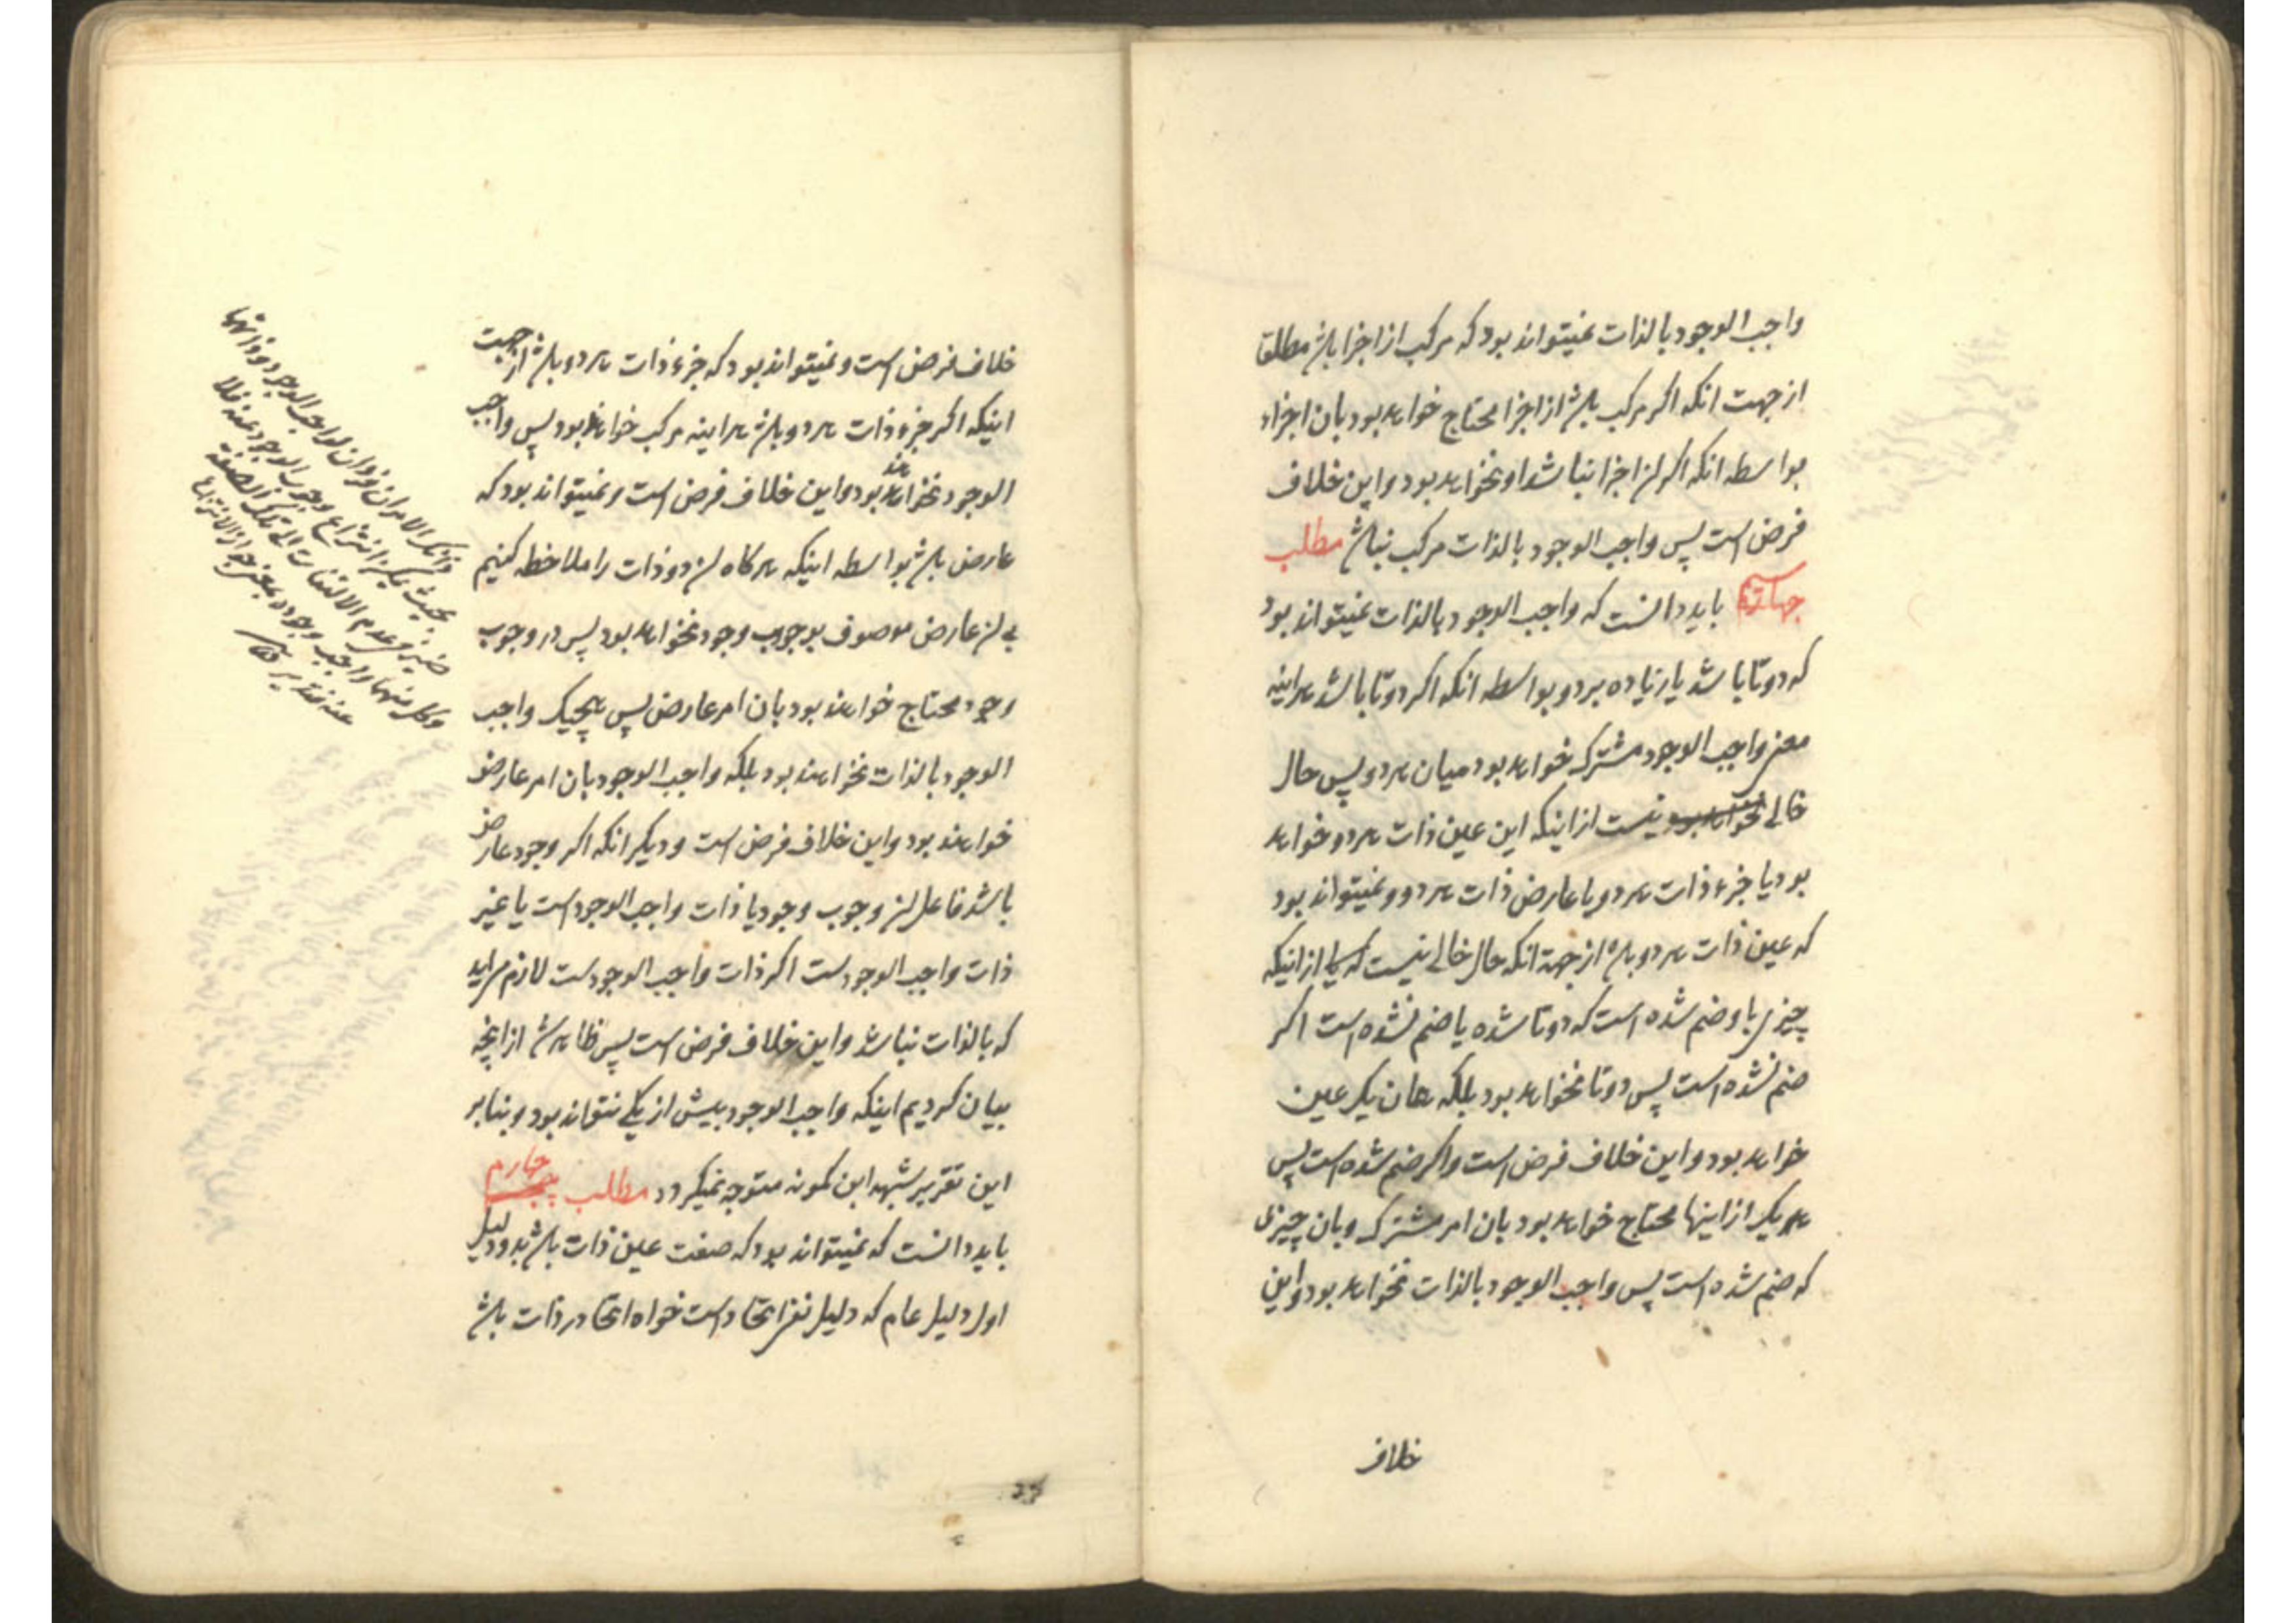 واجب الوجود بالذات نمیتواند بود که مرکب از اجزا باشد مطلقا
از جهت انکه اکر مرکب باشد از اجزا محتاج خواهد بود بان اجزاء
بواسطه انکه اکر ان اجزا نباشد او نخواهد بود و این خلاف
فرض است پس واجب الوجود بالذات مرکب نباشد مطلب
باید دانست که واجب الوجود بالذات نمیتواند بود
که دوتا باشد یا زیاده بر دو بواسطه انکه اکر دوتا باشد هراینه
معنی واجب الوجود مشترک خواهد بود میان هر دو پس حال
خالی نیست از اینکه این عین ذات هر دو خواهد
بود یا جزء ذات هر دو یا عارض ذات هر دو و نمیتواند بود
که عین ذات هر دو باشد از جهة انکه حال خالی نیست از اینکه
چیزی با و ضم شده است که دوتا شده یا ضم نشده است اکر
ضم نشده است پس دوتا نخواهد بود بلکه همان یک عین
خواهد بود و این خلاف فرض است و اکر ضم شده است پس
هر یک از اینها محتاج خواهد بود بان امر مشترک و بان چیزی
که ضم شده است پس واجب الوجود بالذات نخواهد بود و این
خلاف
خلاف فرض است و نمیتواند بود که جزء ذات هر دو باشد از جهت
اینکه اکر جزء ذات هر دو باشد هراینه مرکب خواهند بود پس واجب
الوجود نخواهند بود و این خلاف فرض است و نمیتواند بود که
عارض باشد بواسطه اینکه هرکاه ان دو ذات را ملاحظه کنیم
بی ان عارض موصوف بوجوب وجود نخواهد بود پس در وجوب
وجود محتاج خواهند بود بان امر عارض پس هیچیک واجب
الوجود بالذات نخواهند بود بلکه واجب الوجود بان امر عارض
خواهند بود و این خلاف فرض است و دیکر انکه اکر وجود عارض
باشد فاعل ان وجوب وجود یا ذات واجب الوجود است یا غیر
ذات واجب الوجودست اکر ذات واجب الوجودست لازم می اید
که بالذات نباشد و این خلاف فرض است پس ظاهر شد از انچه
بیان کردیم اینکه واجب الوجود بیش از یکی نتواند بود و بنابر
این تقریر شبهه ابن کمونه متوجه نمیکردد مطلب چهارم
باید دانست که نمیتواند بود که صفت عین ذات باشد بدو دلیل
اول دلیل عام که دلیل نفی اتحاد است خواه اتحاد در ذات باشد